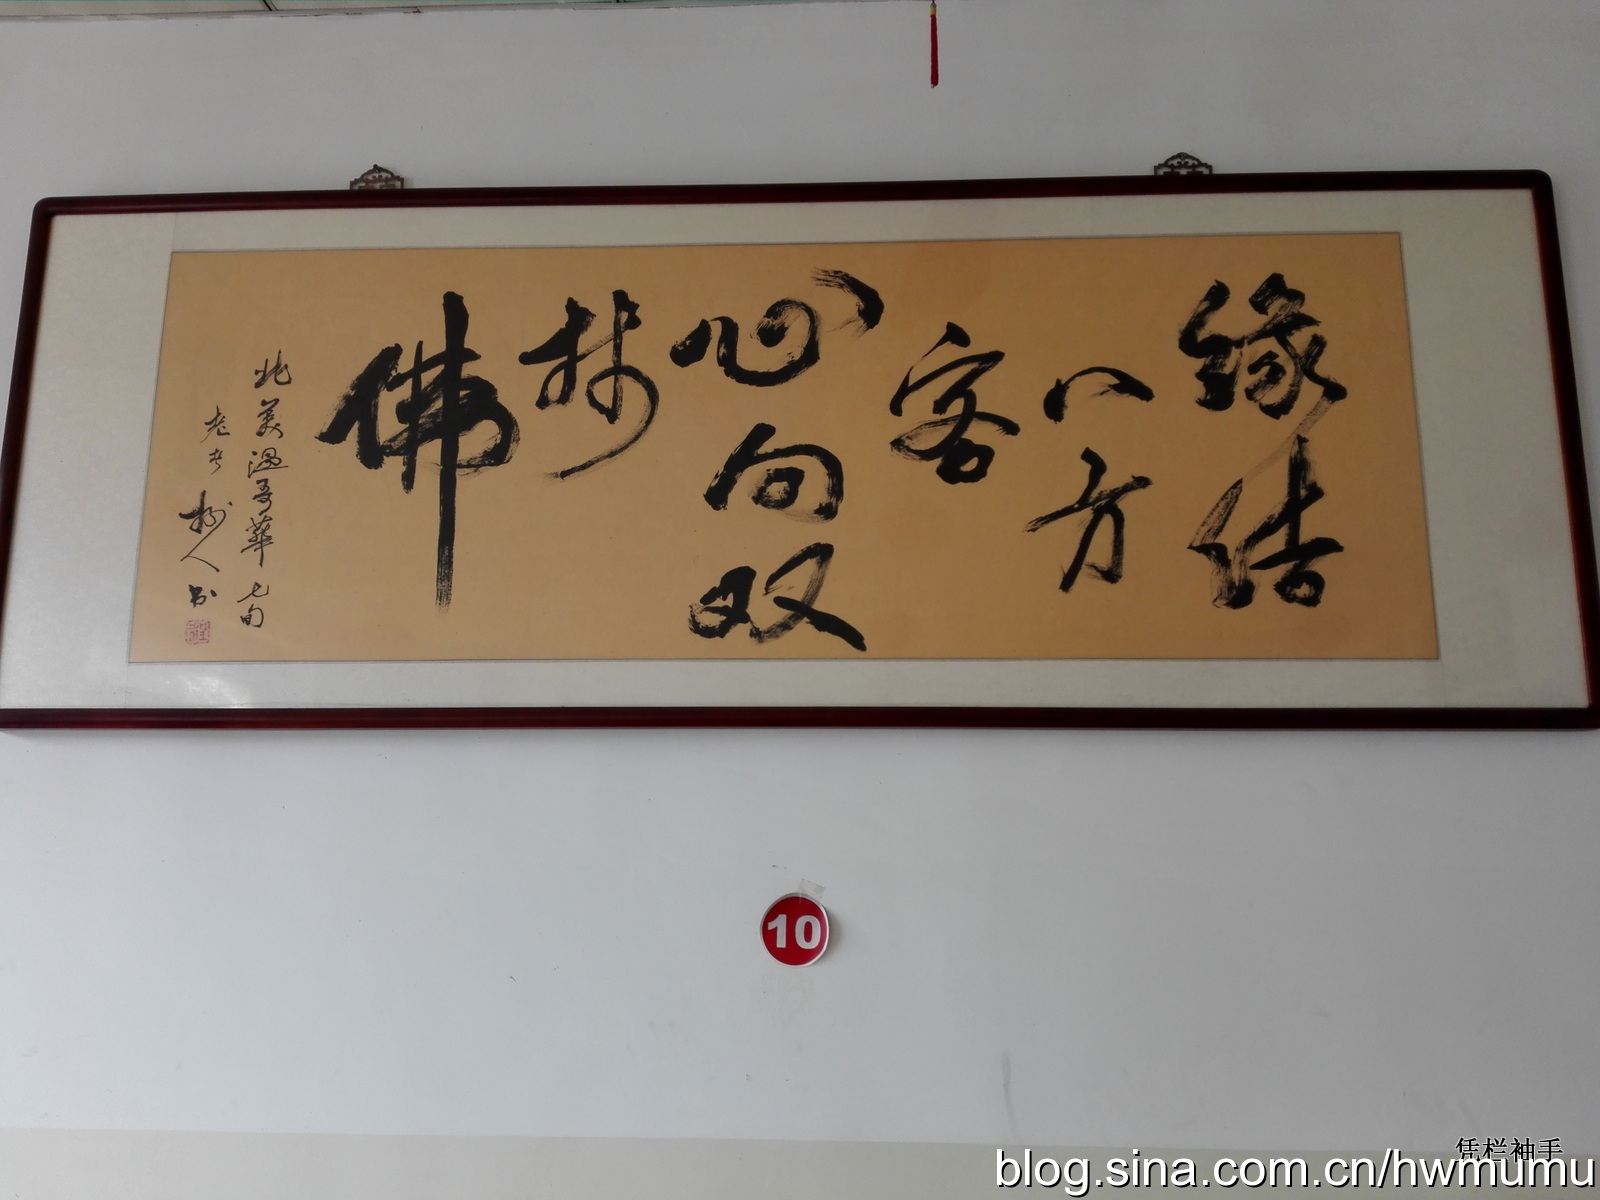 缘结
八方
客
心向双
林
佛
北美温哥華七旬
老 树人书
10
凭栏袖手
blog.sina.com.cn/hwmumu